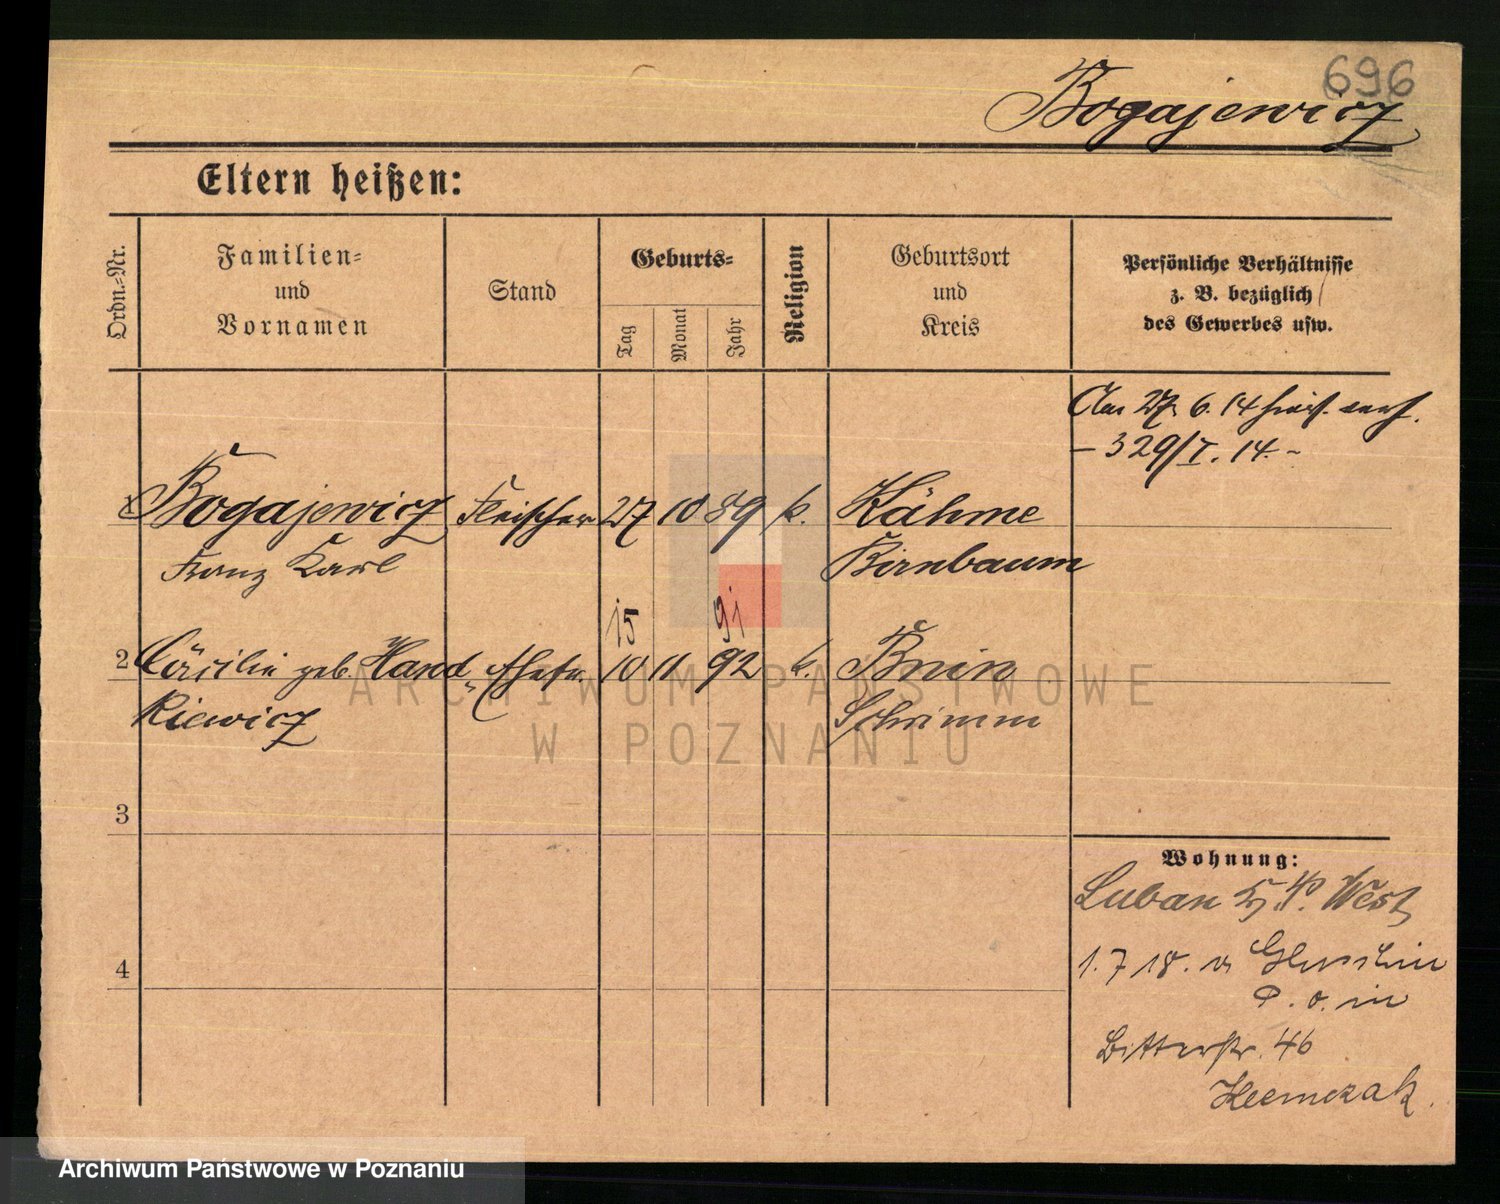 696
Bogajewicz
Eltern heißen:
Ordn.-Nr.
Familien-
und
Vornamen
Stand
Geburts-
Tag
Monat
Jahr
Religion
Geburtsort
und
Kreis
Persönliche Verhältnisse
z. B. bezüglich
des Gewerbes usw.
Am 27. 6. 14 hier
- 329/I. 14. -
1 Bogajewicz Fleischer 27 10 89 k. Kähme
Franz Karl Birnbaum
15 91
2 Cäcilie geb. Hand Ehefr. 10 11 92 k. Bnin
kiewicz Schrimm
3
4
Wohnung:
Luban Kr. P. West
1. 7 18. v.
Bitterstr. 46
Klemczak.
ARCHIWUM PAŃSTWOWE
W POZNANIU
Archiwum Państwowe w Poznaniu